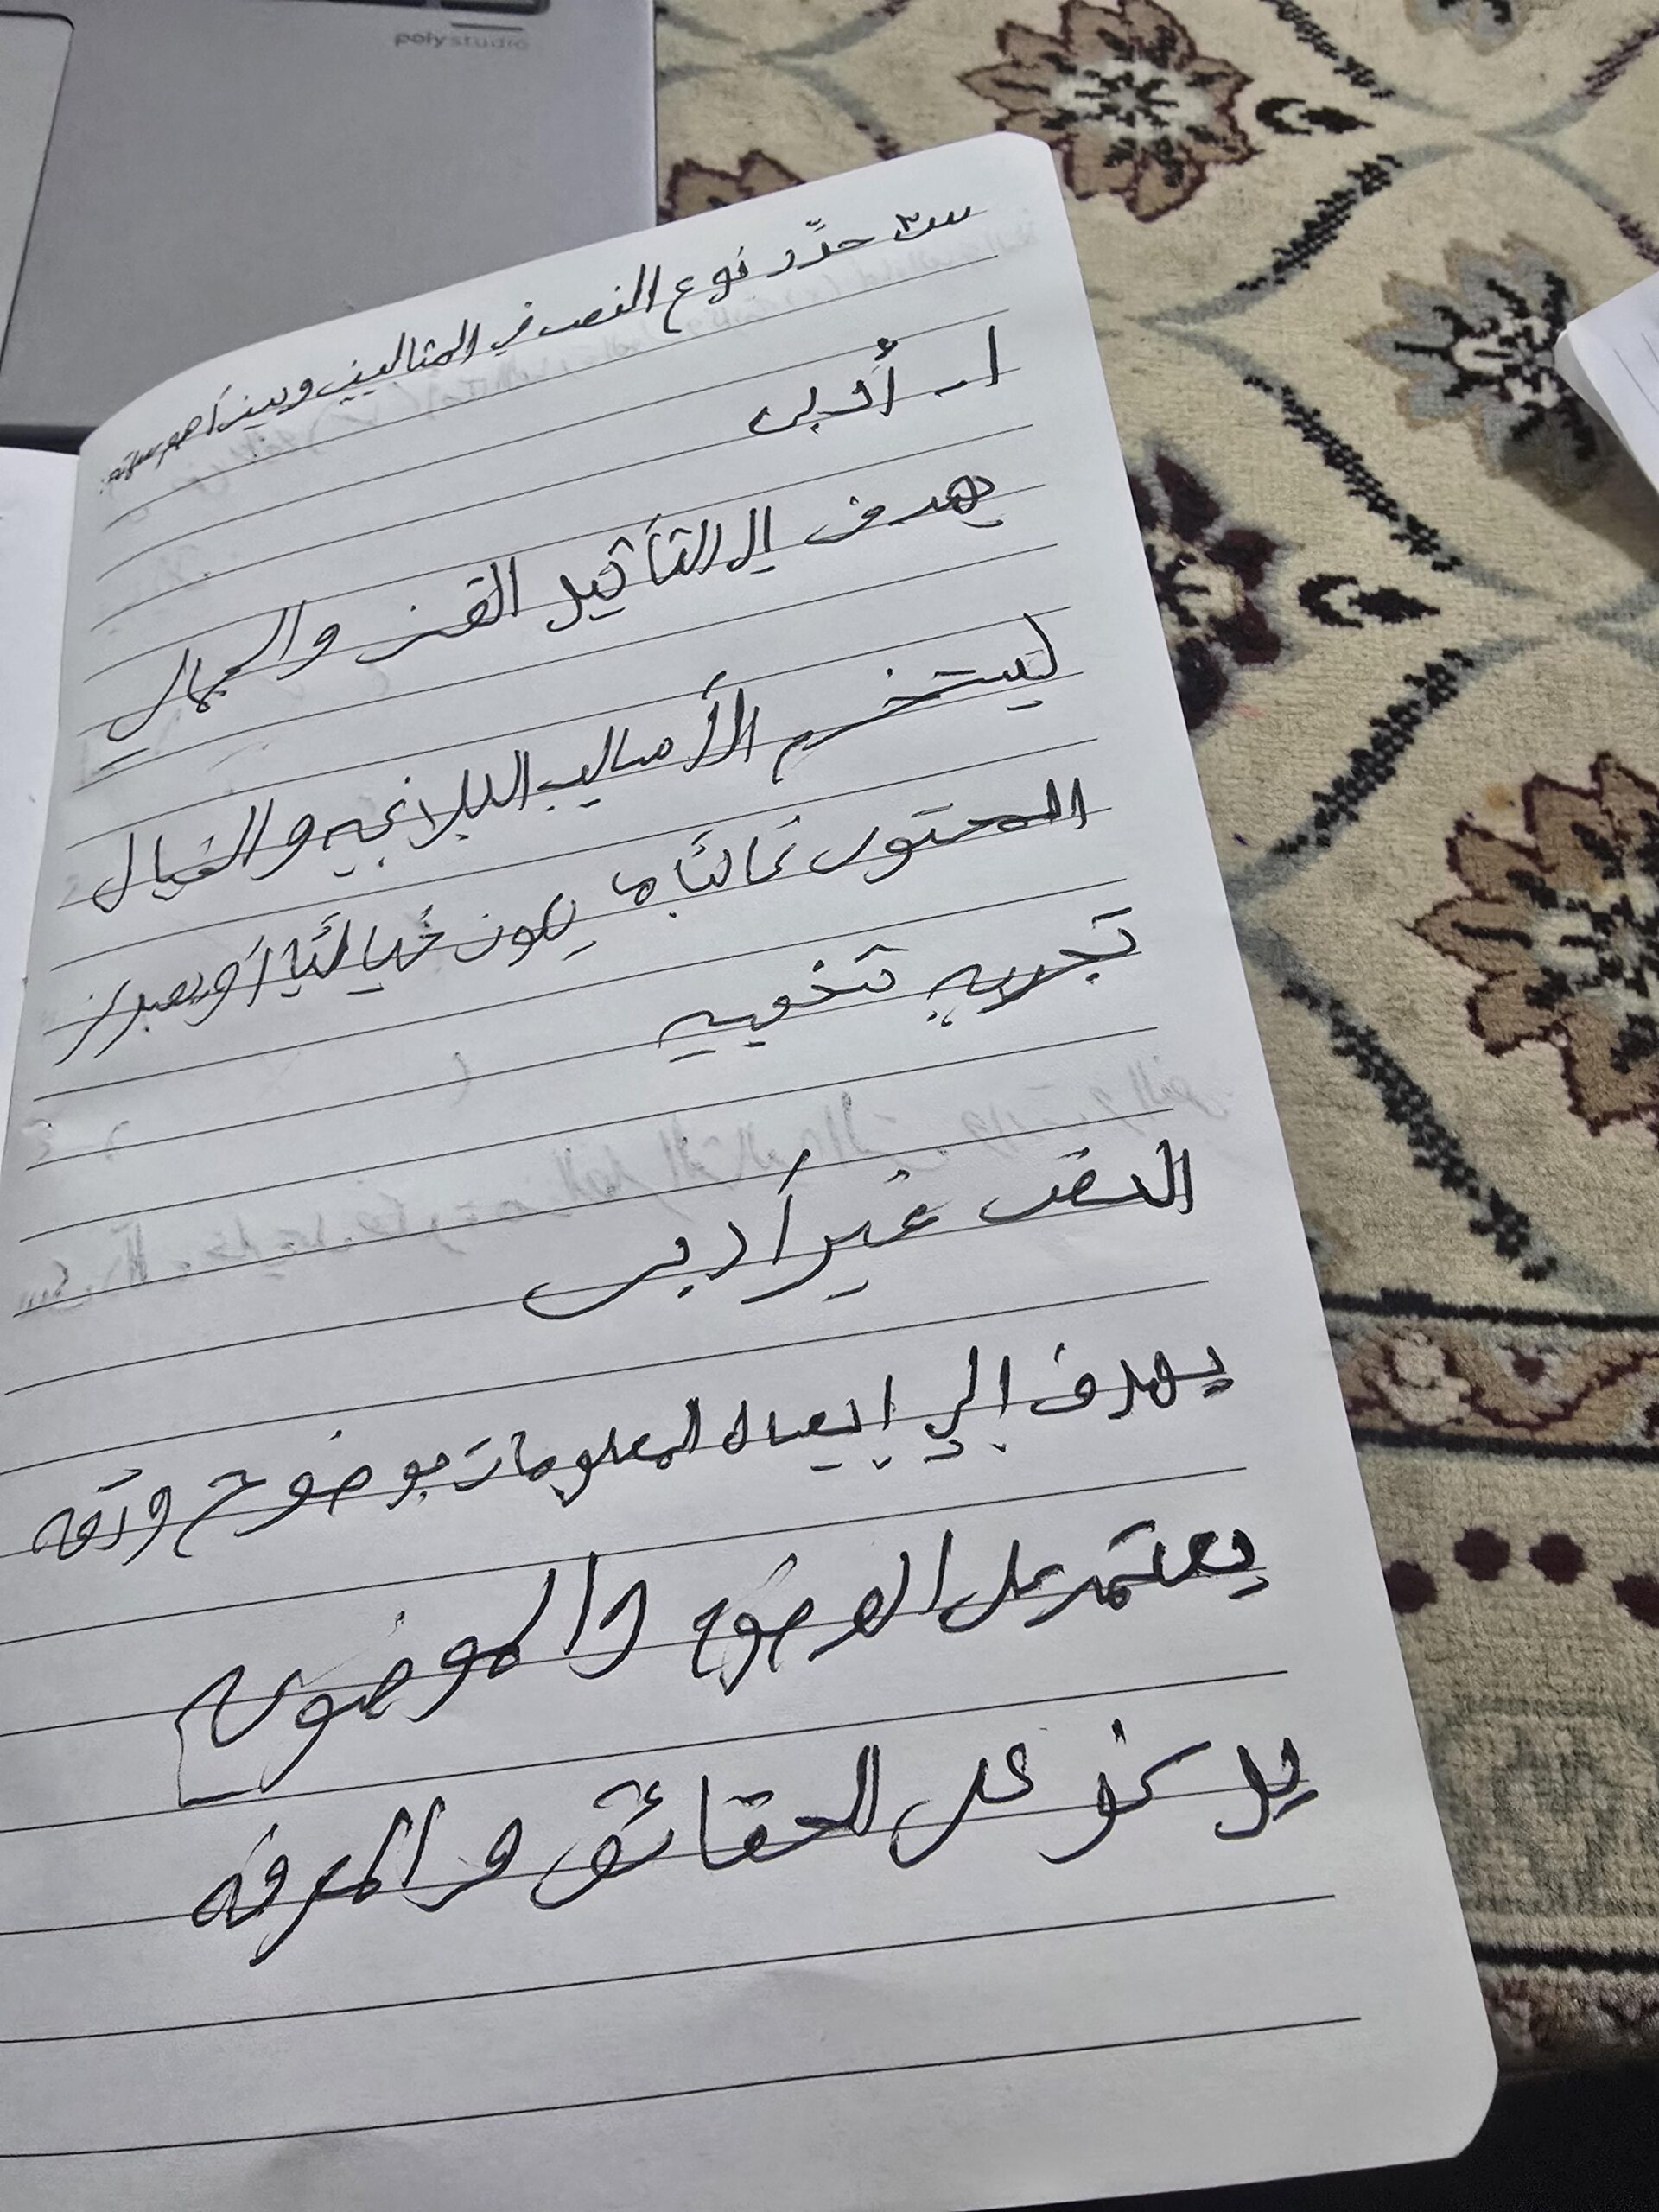 poly studio
س٣ حدّد نوع النص في المثالين وبين أهم سماته:
١- أدبي
يهدف الى التأثير الفني والجمالي
يستخدم الأساليب البلاغيه والخيال
المحتوى غالبًا ما يكون خياليًا أو يعبر عن
تجربه شخصيه
النص غير أدبي
يهدف إلي إيصال المعلومات بوضوح ودقه
يعتمد على الوضوح والموضوعيه
يركز على الحقائق والمعرفه